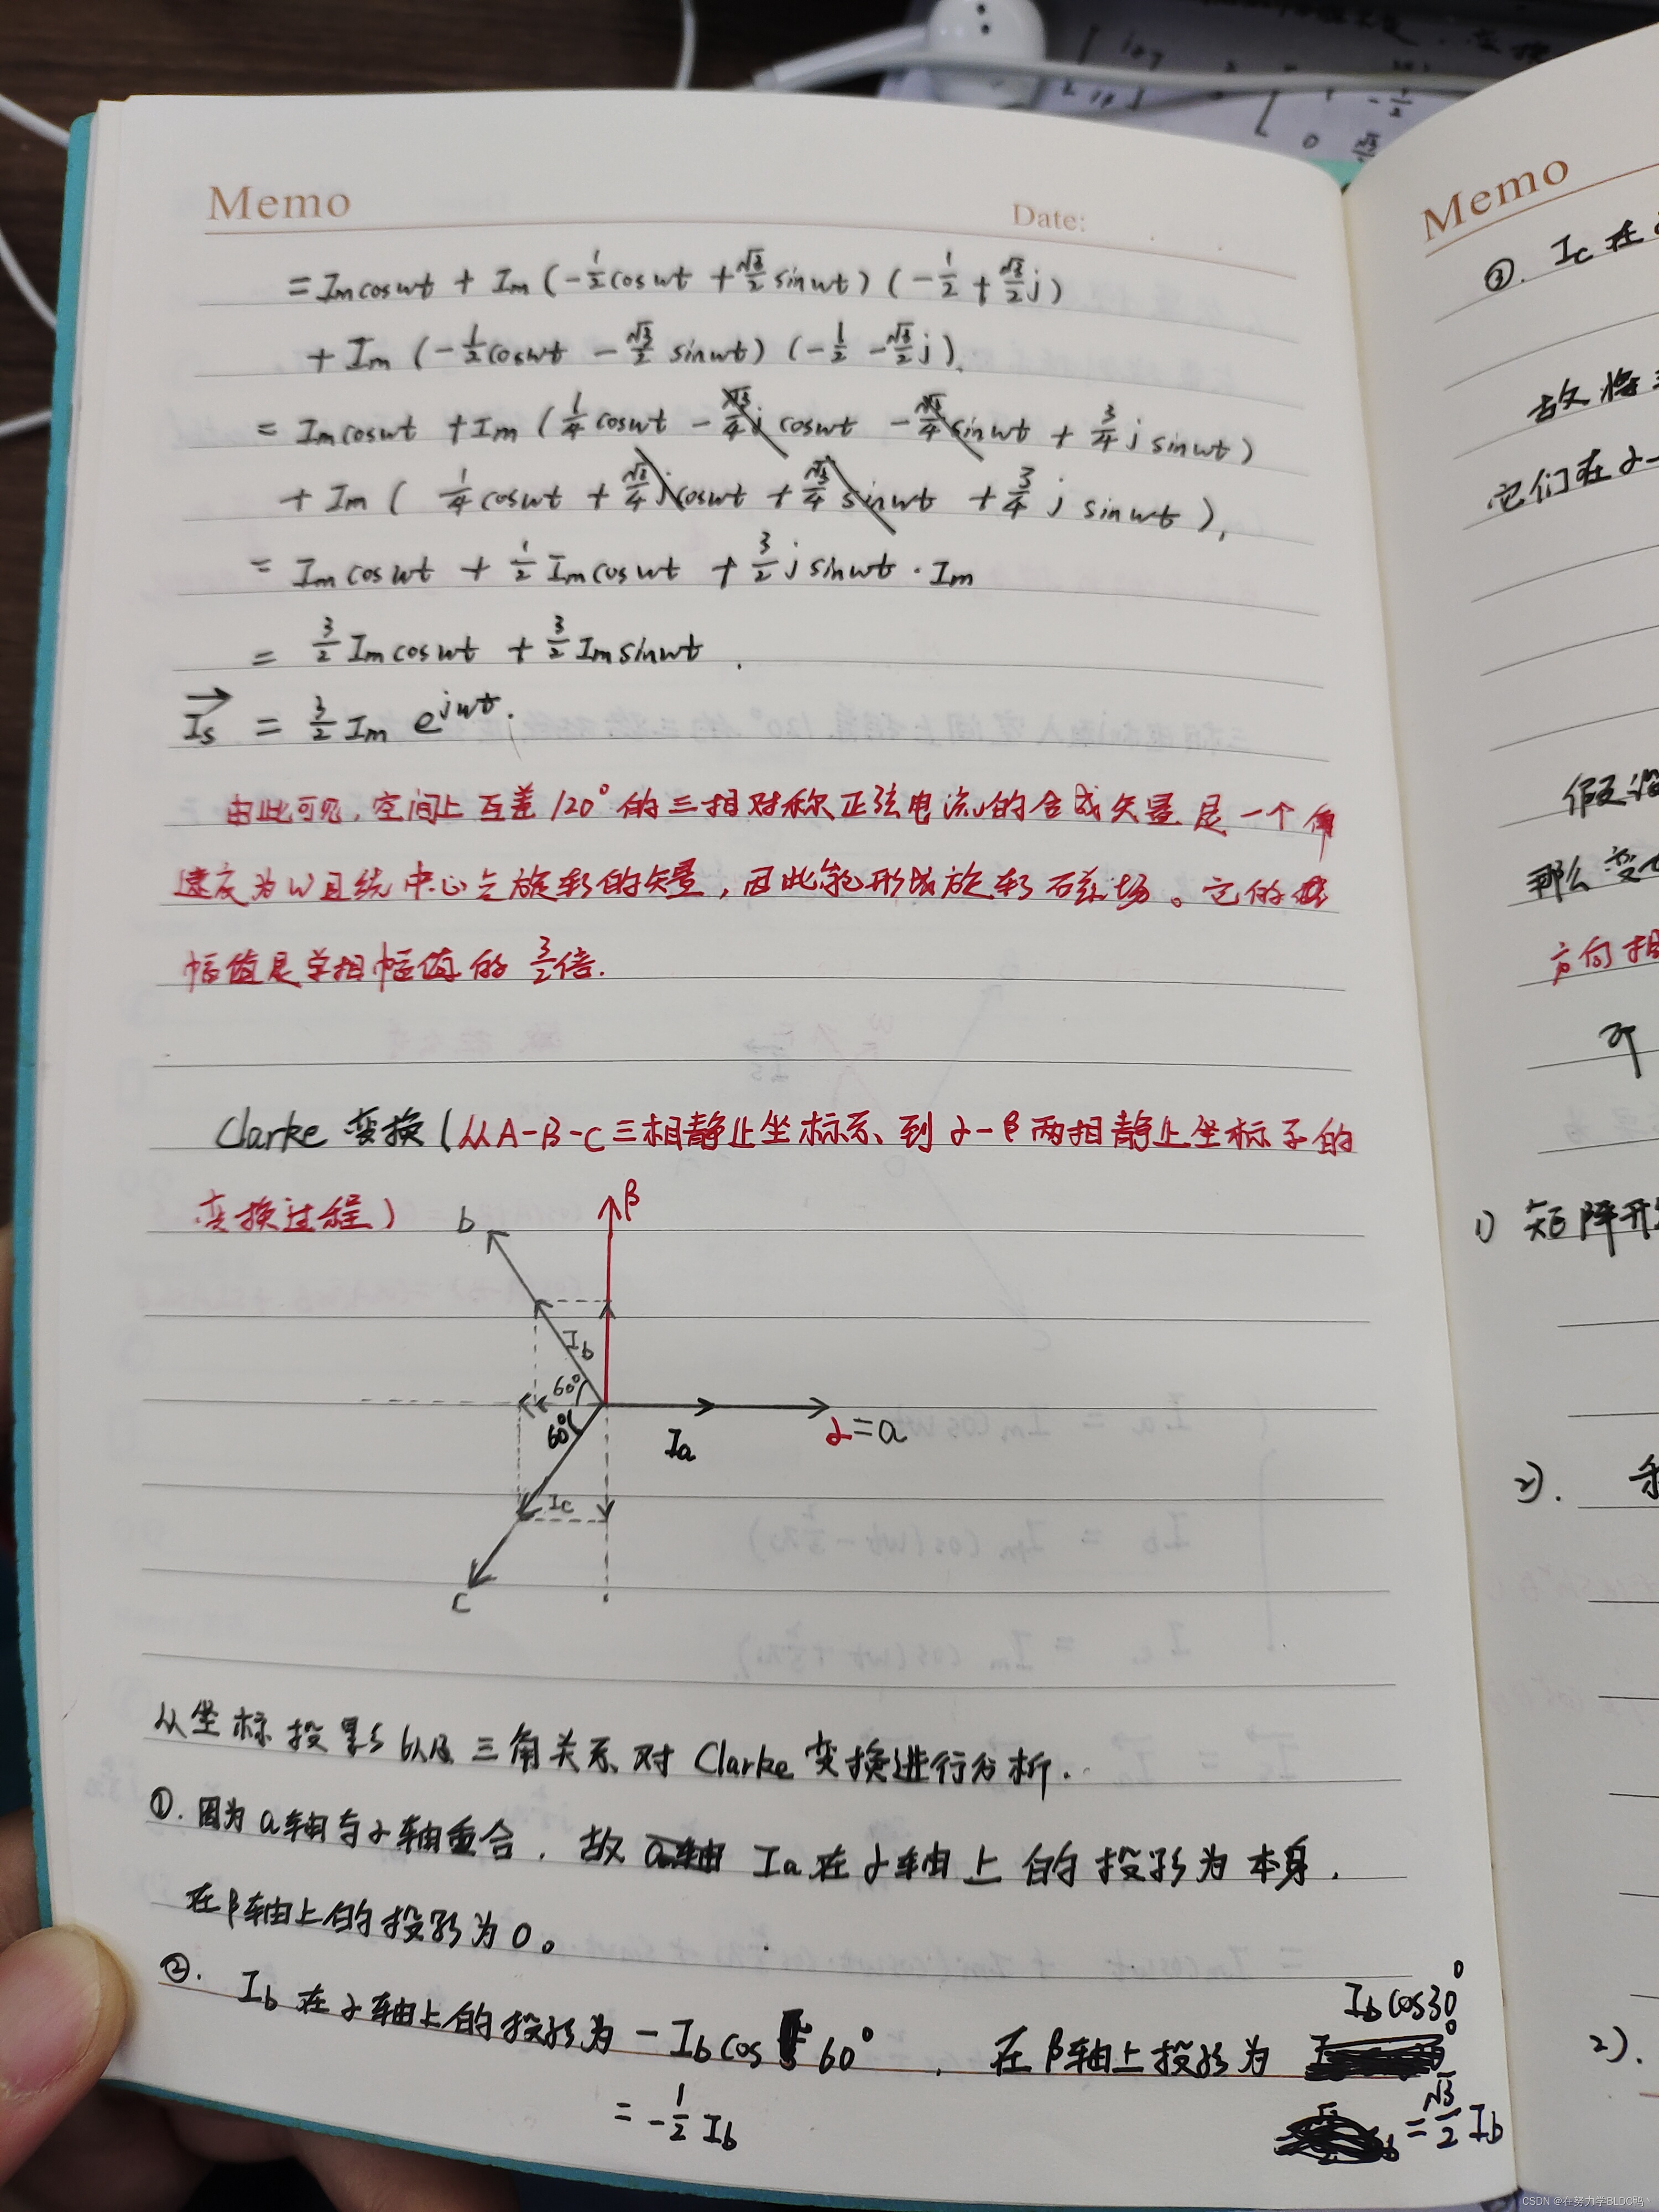 Memo
Date:
= Im cos wt + Im (-1/2 cos wt + √3/2 sin wt) (-1/2 + √3/2 j)
+ Im (-1/2 cos wt - √3/2 sin wt) (-1/2 - √3/2 j).
= Im cos wt + Im (1/4 cos wt - √3/4 j cos wt - √3/4 sin wt + 3/4 j sin wt)
+ Im ( 1/4 cos wt + √3/4 j cos wt + √3/4 sin wt + 3/4 j sin wt ),
= Im cos wt + 1/2 Im cos wt + 3/2 j sin wt · Im
= 3/2 Im cos wt + 3/2 Im sin wt .
Is = 3/2 Im e^jwt.
由此可见, 空间上互差120°的三相对称正弦电流的合成矢量是一个角
速度为w且绕中心点旋转的矢量, 因此能形成旋转磁场。它的
幅值是单相幅值的 3/2倍.
Clarke 变换(从A-B-C三相静止坐标系、到α-β两相静止坐标系的
变换过程)
b
β
Ib
60°
60°
Ia
α=a
Ic
c
从坐标投影以及三角关系对 Clarke 变换进行分析.
①. 因为a轴与α轴重合. 故 Ia在α轴上的投影为本身.
在β轴上的投影为0。
②. Ib在α轴上的投影为 -Ib cos 60° . 在β轴上投影为 Ib cos30°
= -1/2 Ib
= √3/2 Ib
Memo
③. Ic 在
故将
它们在α-
假设
那么变
方向相
可
1) 矩阵形
2).
2).
CSDN @在努力学BLDC鸭丶